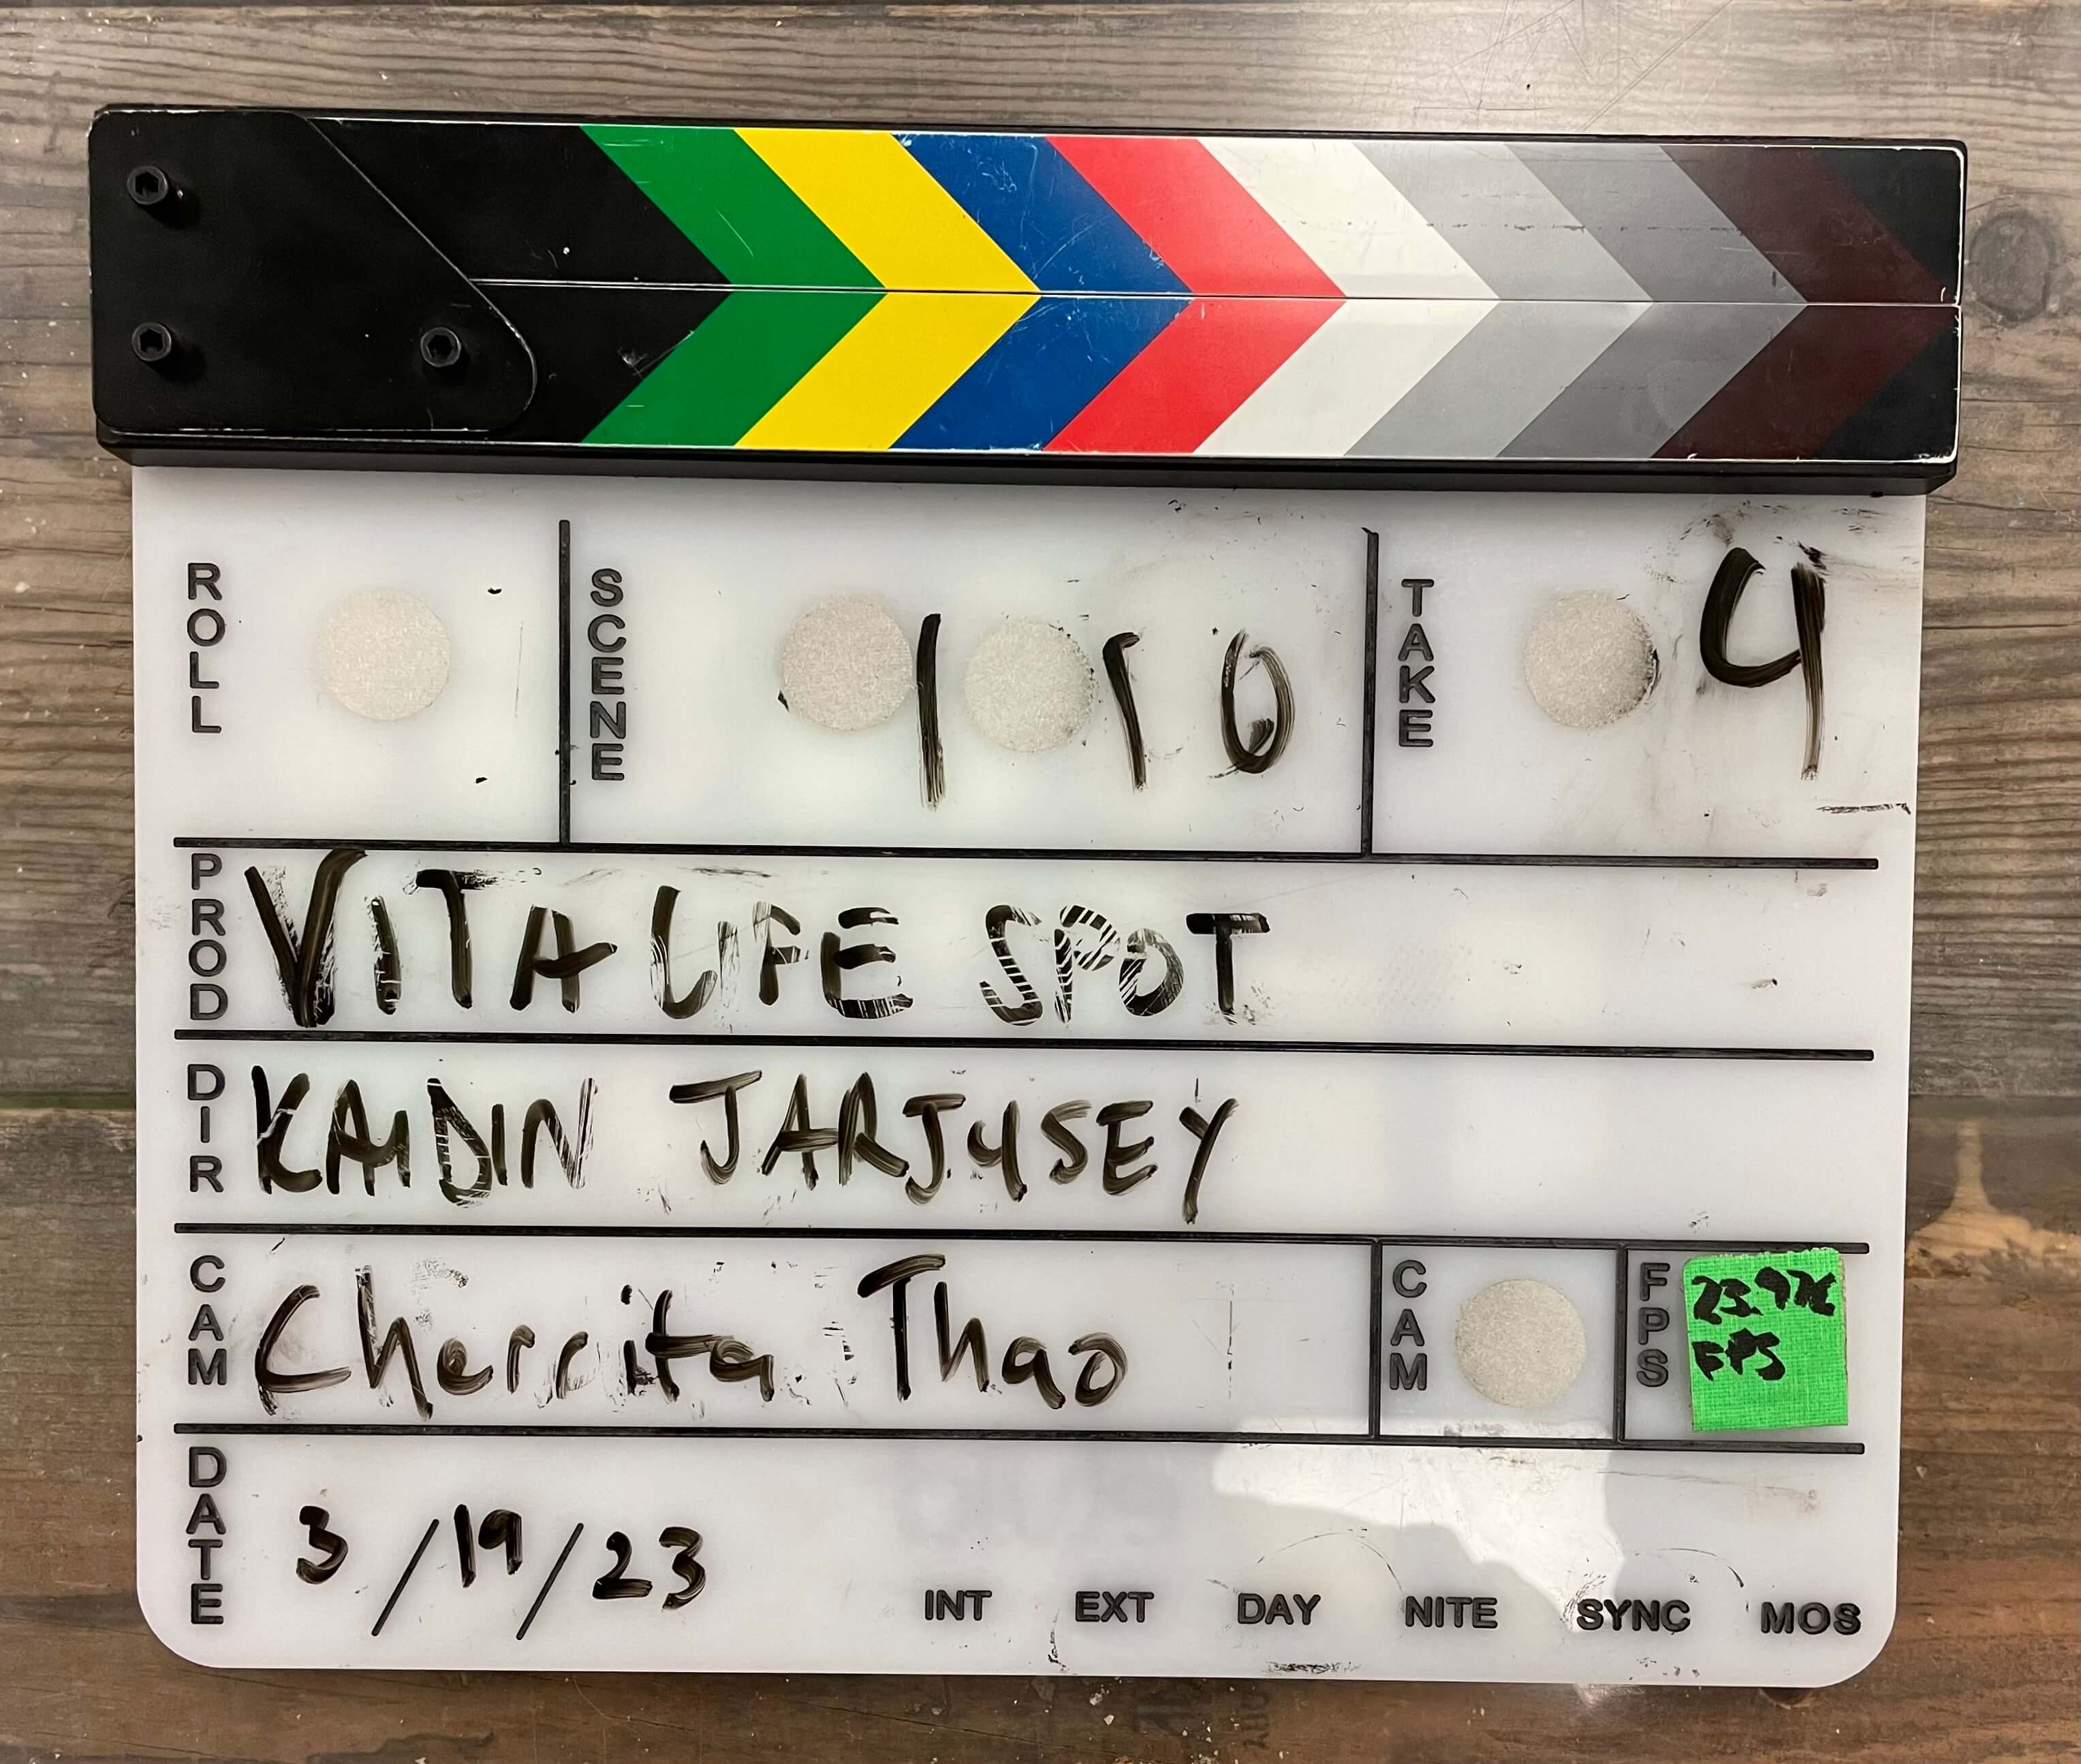 ROLL SCENE 1 10 TAKE 4
PROD VITA LIFE SPOT
DIR KAIDIN JARJUSEY
CAM Cherrita Thao CAM FPS 23.976
FPS
DATE 3/19/23
INT EXT DAY NITE SYNC MOS